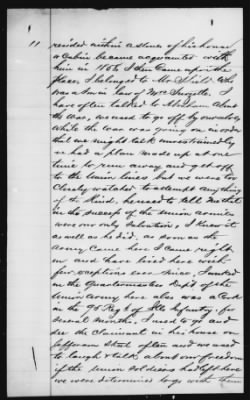 11
resided within a stones of his house
or Cabin became acquainted with
him in 1856 I then Came upon the
place, I belonged to Mr Shields who
was a Son in law of Mrs Surgette. I
have often talked to Abraham about
the war, we used to go off by ourselves
while the war was going on in order
that we might talk unrestrained by
we had a plan made up at one
time to run away and get off
to the Union lines but we were too
Closely watched to attempt anything
of the kind, he used to tell me that
in the success of the Union armies
were our only Salvation, I knew it
as well as he did, as soon as the
army Came here I came right
in and have lived here with
few exceptions ever since, I worked
in the Quartermasters Dept of the
Union Army here also was a Cook
in the 95 Regt of Ills Infantry for
several months, I used to go and
see the Claimant in his house on
Jefferson Street often and we used
to laugh & talk about our freedom
if the Union soldiers had left here
we were determined to go with them